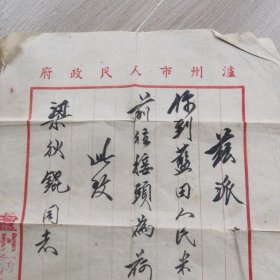 瀘州市人民政府
茲派
你到藍田人民米
前往接頭為荷
此致
梁狄錕同志